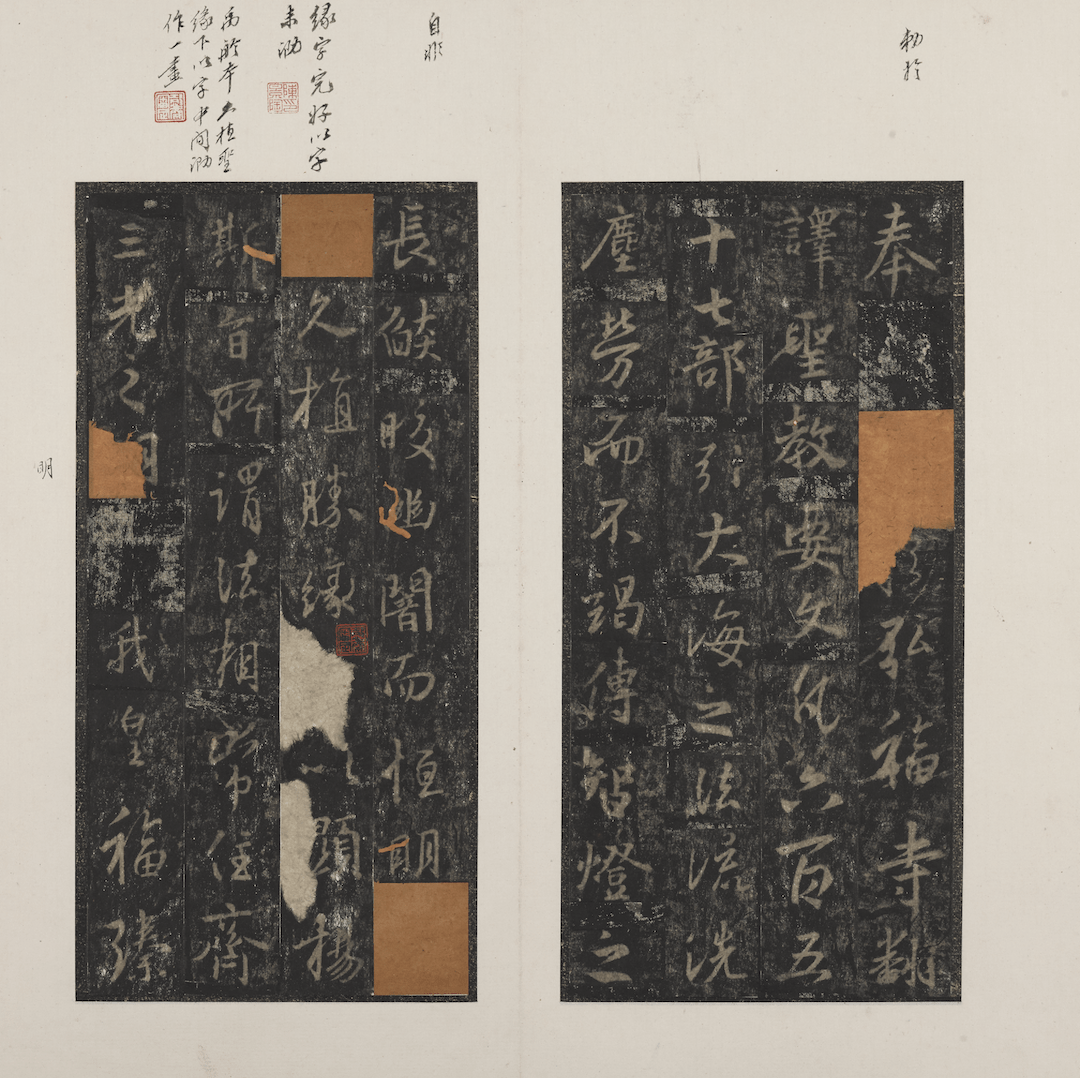 勅於
奉於弘福寺翻
譯聖教要文凡六百五
十七部引大海之法流洗
塵勞而不竭傳智燈之
自非
長燄皎幽闇而恒明
緣字完好以字
未泐
久植勝緣以顯揚
禹舲本久植聖
緣下以字中間泐
作一畫
斯旨所謂法相常住齊
三光之明我皇福臻
明